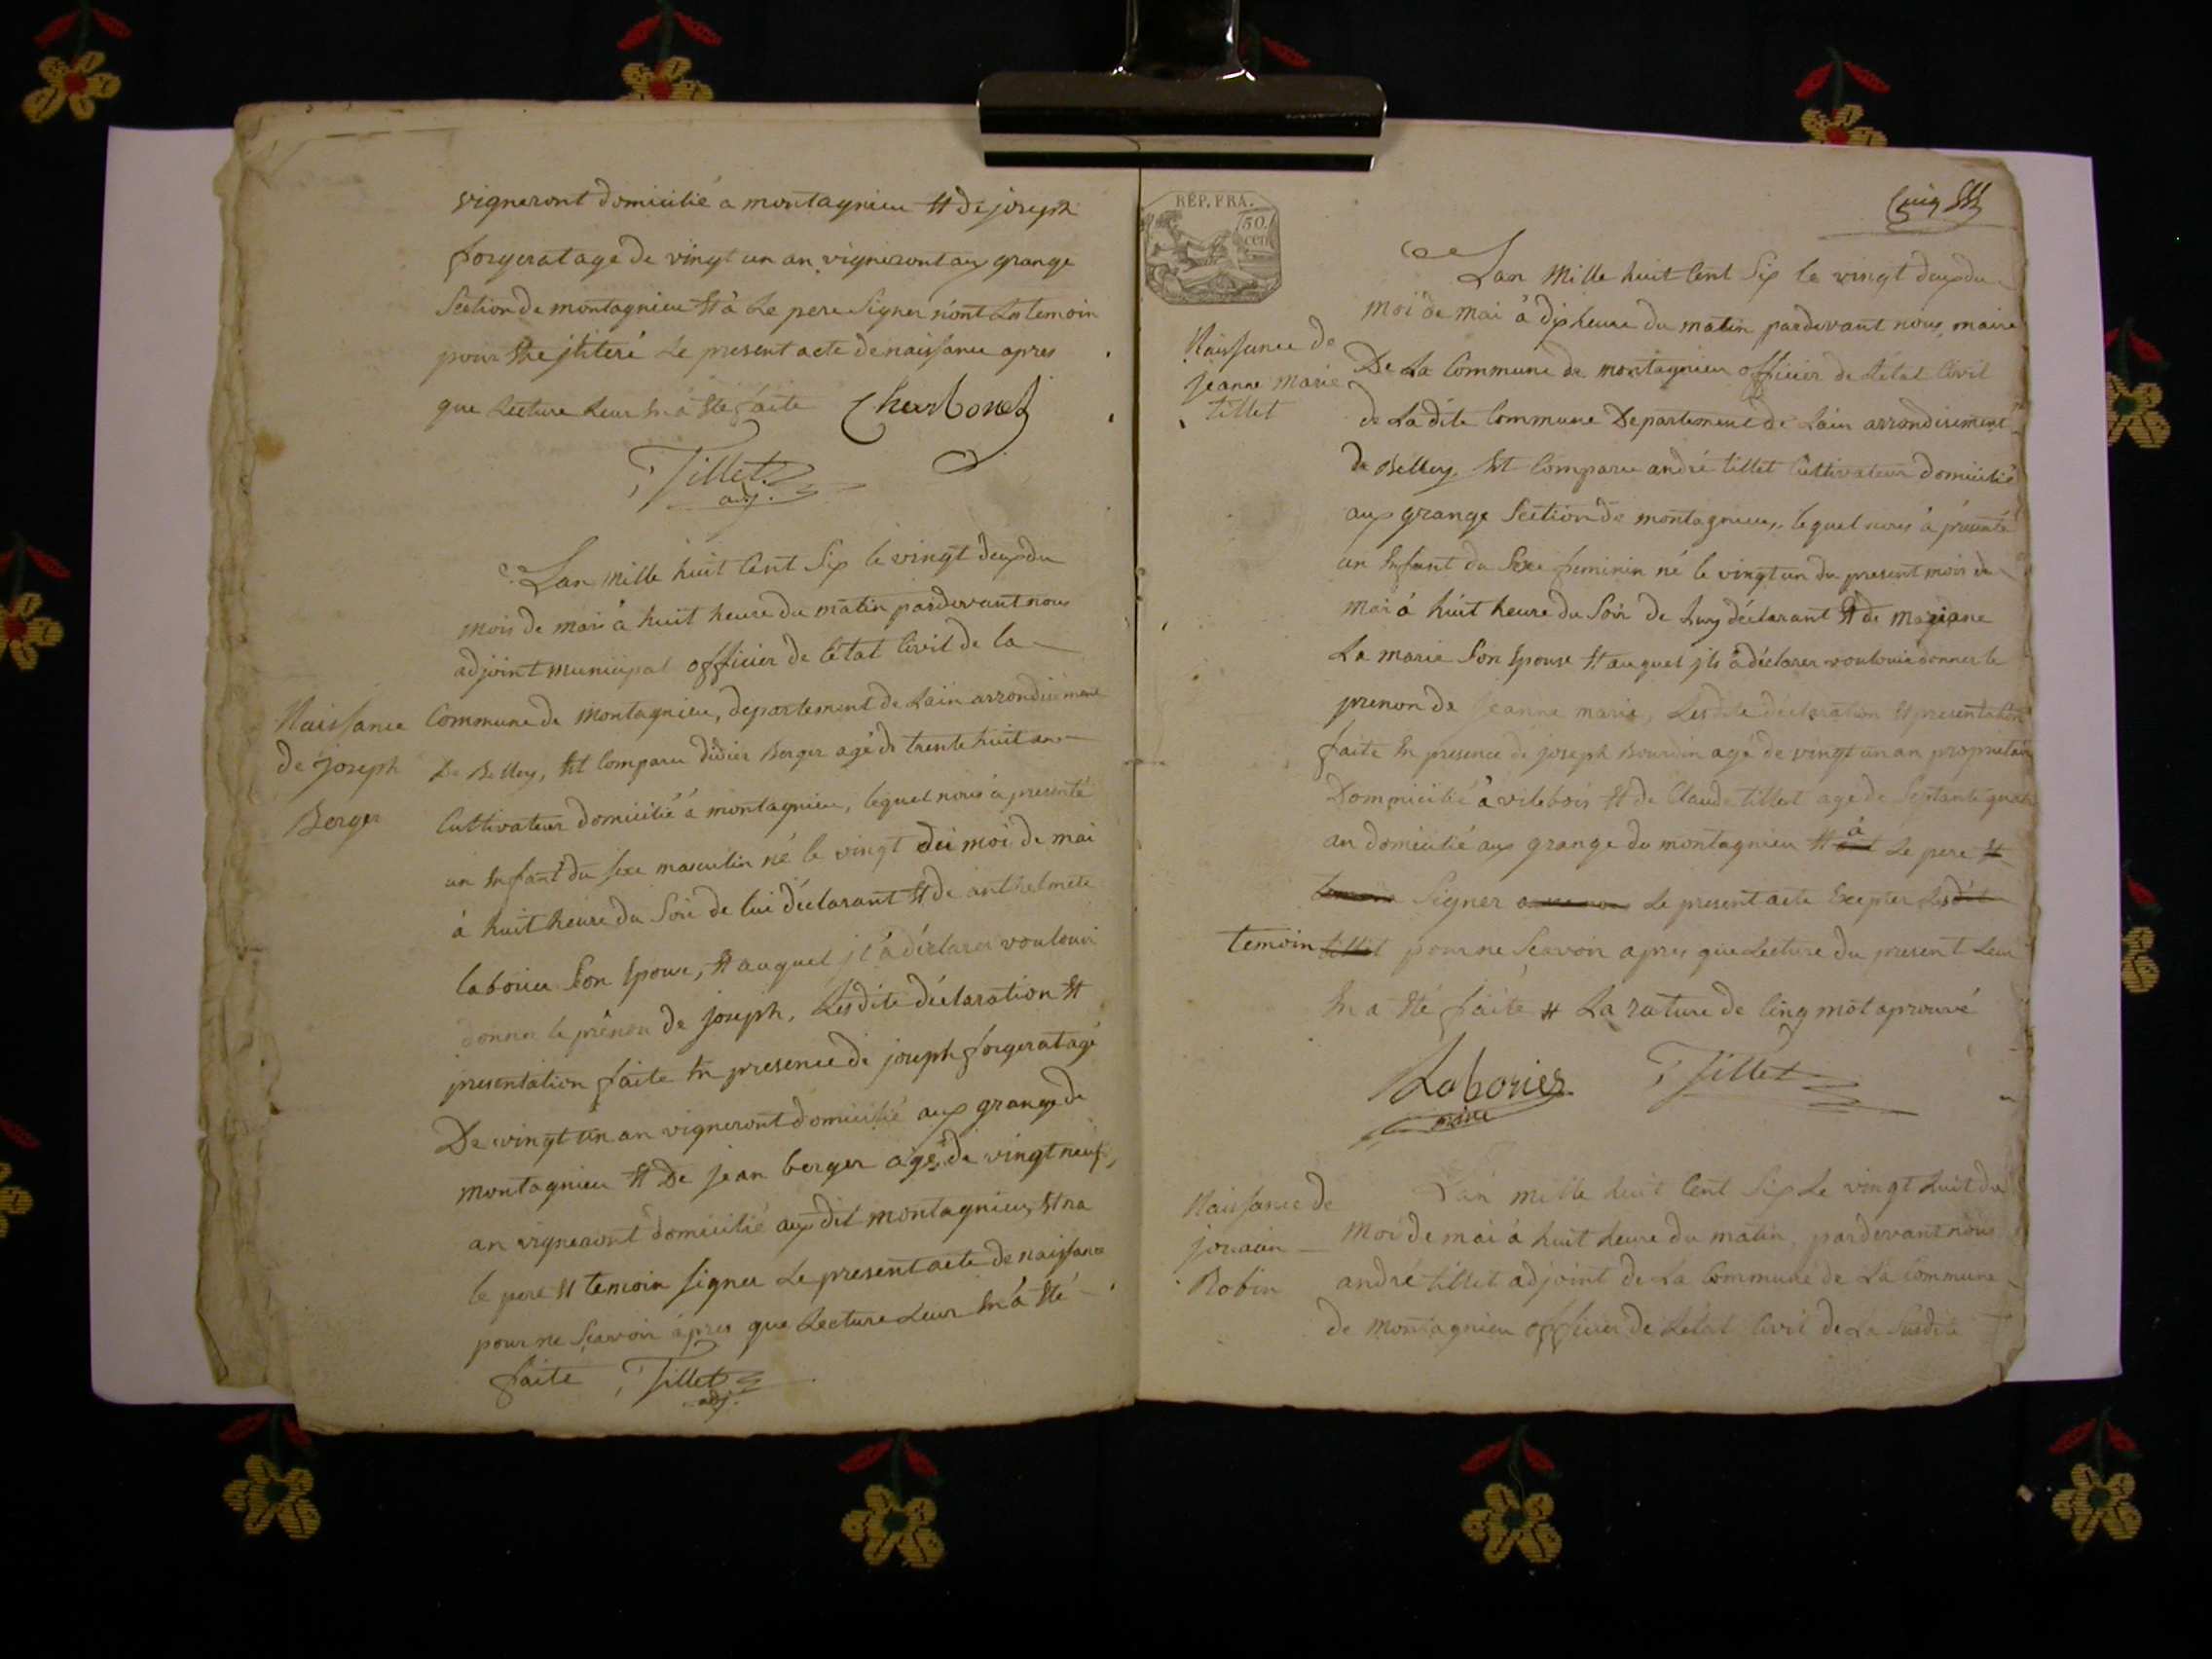 vigneront domicilié a montagnieu Et de joseph
forgerat agé de vingt un an vigneront aux grange
Section de montagnieu Et à Le pere Signer n'ont Les temoin
pour Le present acte de naissance apres
que Lecture Leur En á Eté faite Charbonet
Tillet
adj.
Lan mille huit Cent Six le vingt deux du
mois de mai à huit heure du matin pardevant nous
adjoint municipal officier de létat Civil de la
Naissance
de joseph
Berger
Commune de montagnieu, departement de Lain arrondisement
De Belley, Est Comparu didier Berger agé de trente huit an
Cultivateur domicilié á montagnieu, lequel nous á presenté
un Enfant du sexe masculin né le vingt du moi de mai
á huit heure du Soir de lui déclarant Et de anthelmete
laborier Son Epouse, Et auquel jl á déclarer voulouir
donner le prénon de joseph, Lesdite déclaration Et
presentation faite En presence de joseph forgerat agé
De vingt un an vigneront domicilié aux grange de
montagnieu Et De jean berger agé de vingt neuf,
an vigneront domicilié audit montagnieu, Et na
le pere Et temoin signer Le present acte de naissance
pour ne Scavoir ápres que Lecture Leur En á Eté
faite Tillet
adj.
RÉP. FRA.
50.
cen
Cinq
Lan Mille huit Cent Six le vingt deux du
moi de mai á dix heure du matin pardevant nous maire
Naissance de
jeanne marie
tillet
De La Commune de montagnieu officier de Létat Civil
de La dite Commune Departement de Lain arrondisement
de Belley Est Comparu andré tillet Cultivateur domicilié
aux grange Section de montagnieu, lequel nous á présenté
un Enfant du Sexe feminin né le vingt un du present mois de
mai á huit heure du Soir de Luy déclarant Et de mariane
La marie Son Epouse Et auquel jls á déclarer voulouir donner le
prenon de jeanne marie, Lesdite declaration Et presentation
faite En presence de joseph Bourdin agé de vingt un an proprietair
Dommicilié á vilebois Et de Claude tillet agé de Septante quatr
an domicilié aux grange du montagnieu Et á Le pere Et
Signer Le present acte Excepter Les dit
temoin tillet pour ne Scavoir apres que Lecture du present Leur
En a Eté faite Et La rature de Cinq mot aprouvé
Laborier Tillet
maire
Naissance de
jouacin
Robin
Lan mille huit Cent Six Le vingt huit du
Moi de mai á huit heure du matin, pardevant nous
andré tillet adjoint de La Commune de La Commune
de montagnieu officier de Létat Civil de La Susdite